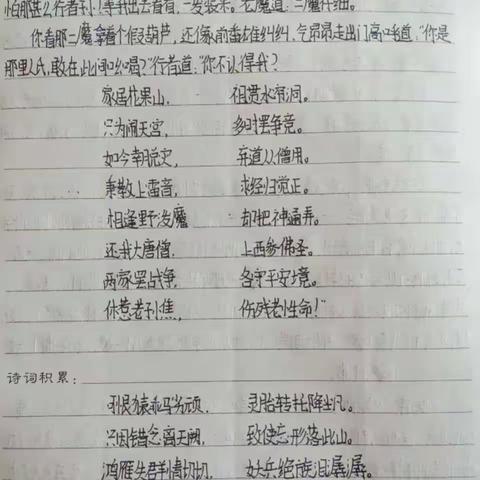 怕那甚么行者孙!等我出去看看,一发装来。老魔道:二魔仔细。
你看那二魔拿着个假葫芦,还像前番雄纠纠,气昂昂走出门高叫道:“你是
那里人氏,敢在此间吆喝?”行者道:“你不认得我?
家居花果山, 祖贯水帘洞。
只为闹天宫, 多时罢争竞。
如今幸脱灾, 弃道从僧用。
秉教上雷音, 求经归觉正。
相逢野泼魔 却把神通弄。
还我大唐僧, 上西参佛圣。
两家罢战争, 各守平安境。
休惹老孙焦, 伤残老性命!”
诗词积累:
可恨猿乖马劣顽, 灵胎转托降尘凡。
只因错念离天阙, 致使忘形落此山。
鸿雁失群情切切, 妖兵绝族泪潺潺。